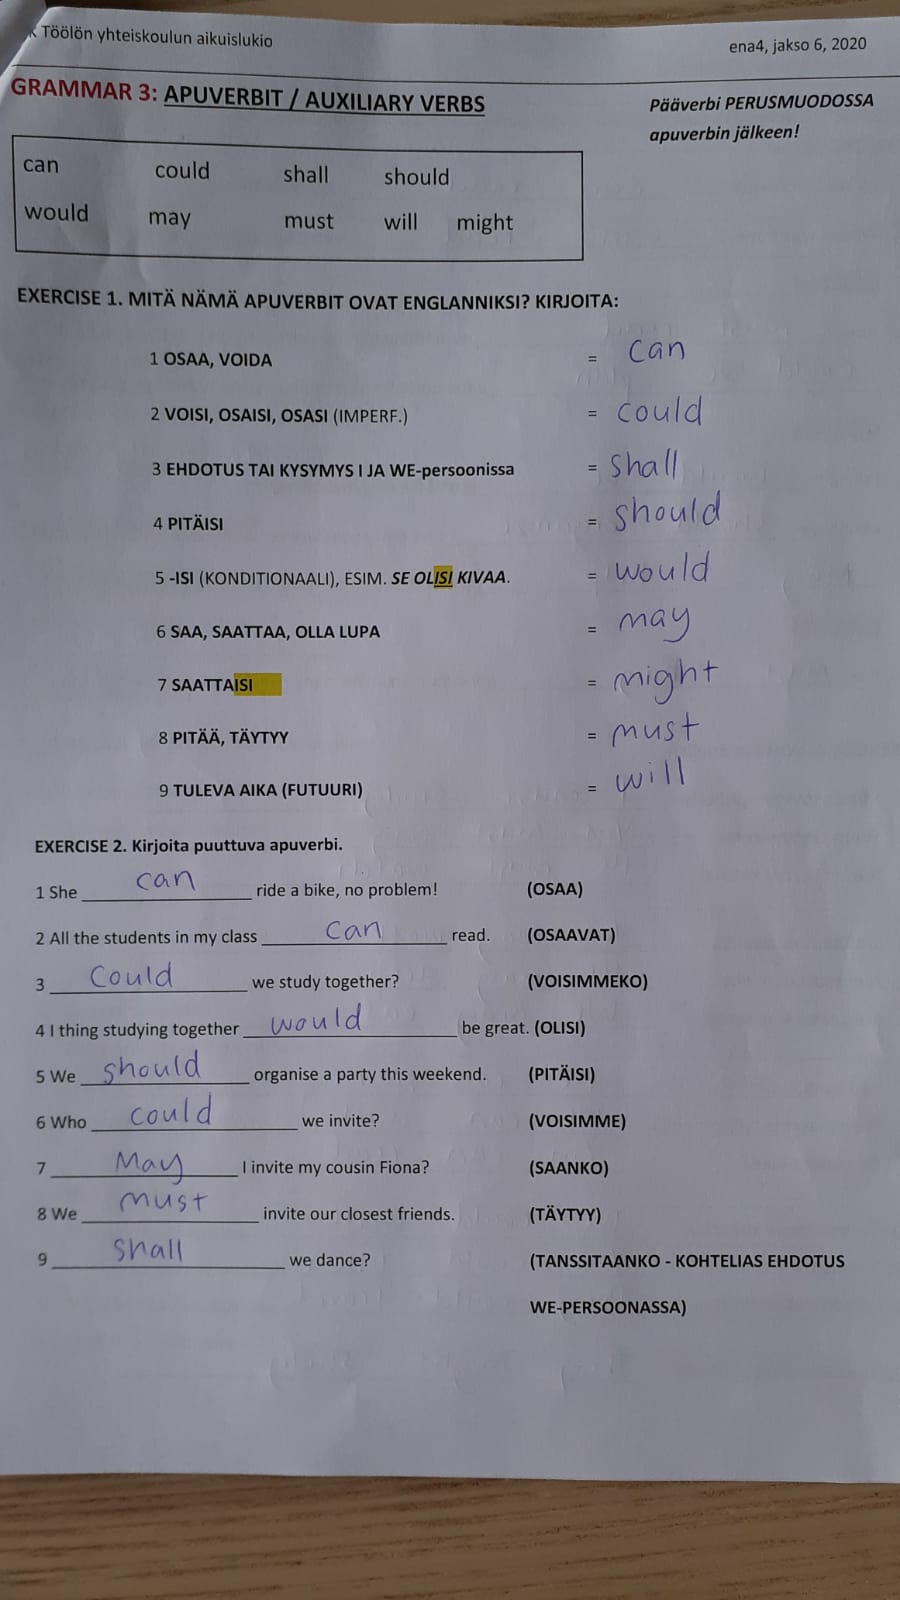 k Töölön yhteiskoulun aikuislukio
ena4, jakso 6, 2020
GRAMMAR 3: APUVERBIT / AUXILIARY VERBS
Pääverbi PERUSMUODOSSA
apuverbin jälkeen!
can could shall should
would may must will might
EXERCISE 1. MITÄ NÄMÄ APUVERBIT OVAT ENGLANNIKSI? KIRJOITA:
1 OSAA, VOIDA = can
2 VOISI, OSAISI, OSASI (IMPERF.) = could
3 EHDOTUS TAI KYSYMYS I JA WE-persoonissa = shall
4 PITÄISI = should
5 -ISI (KONDITIONAALI), ESIM. SE OLISI KIVAA. = would
6 SAA, SAATTAA, OLLA LUPA = may
7 SAATTAISI = might
8 PITÄÄ, TÄYTYY = must
9 TULEVA AIKA (FUTUURI) = will
EXERCISE 2. Kirjoita puuttuva apuverbi.
1 She can ride a bike, no problem! (OSAA)
2 All the students in my class can read. (OSAAVAT)
3 Could we study together? (VOISIMMEKO)
4 I thing studying together would be great. (OLISI)
5 We should organise a party this weekend. (PITÄISI)
6 Who could we invite? (VOISIMME)
7 May I invite my cousin Fiona? (SAANKO)
8 We must invite our closest friends. (TÄYTYY)
9 Shall we dance? (TANSSITAANKO - KOHTELIAS EHDOTUS
WE-PERSOONASSA)